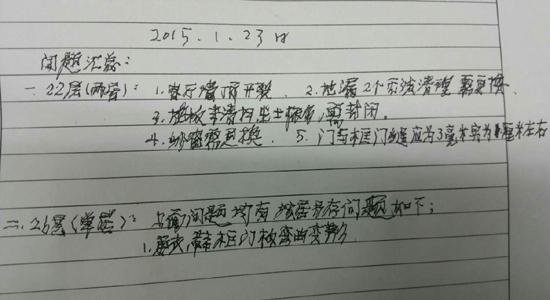 2015.1.23日
问题汇总:
一.22层(两管): 1.客厅墙顶开裂 2.地漏2个无法清理需更换
3.地板未清扫,尘土较多,需封闭。
4.纱窗需更换 5.门与框门缝应为3毫米实为厘米左右
二.26层(单层): 上面问题均有 独层另存问题如下:
1.门框门板弯曲变形